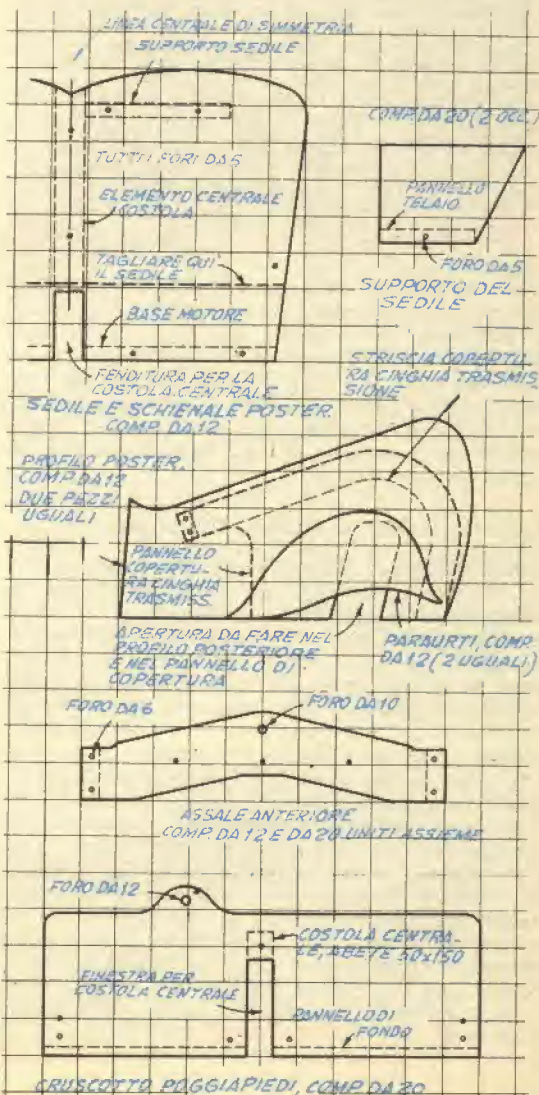 LINEA CENTRALE DI SIMMETRIA
SUPPORTO SEDILE
TUTTI I FORI DA 5
ELEMENTO CENTRALE
COSTOLA
TAGLIARE QUI
IL SEDILE
BASE MOTORE
FENDITURA PER LA
COSTOLA CENTRALE
SEDILE E SCHIENALE POSTER.
COMP. DA 12
COMP. DA 20 (2 OCC.)
PANNELLO
TELAIO
FORO DA 5
SUPPORTO DEL
SEDILE
STRISCIA COPERTU-
RA CINGHIA TRASMIS-
SIONE
PROFILO POSTER.
COMP. DA 12
DUE PEZZI
UGUALI
PANNELLO
COPERTU-
RA CINGHIA
TRASMISS.
APERTURA DA FARE NEL
PROFILO POSTERIORE
E NEL PANNELLO DI
COPERTURA
PARAURTI, COMP.
DA 12 (2 UGUALI)
FORO DA 6
FORO DA 10
ASSALE ANTERIORE
COMP. DA 12 E DA 20 UNITI ASSIEME
FORO DA 12
COSTOLA CENTRA-
LE, ABETE 50x150
FINESTRA PER
COSTOLA CENTRALE
PANNELLO DI
FONDO
CRUSCOTTO POGGIAPIEDI, COMP. DA 20